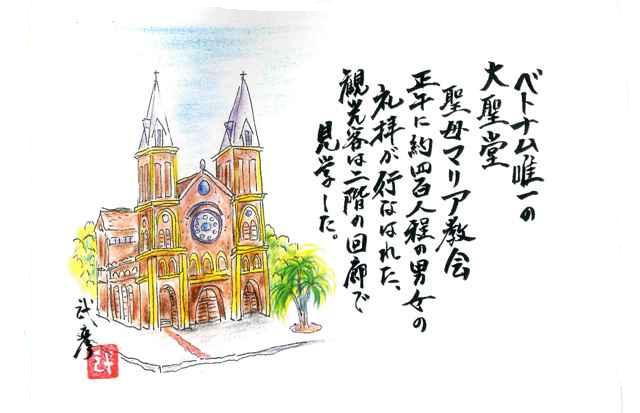 ベトナム唯一の
大聖堂
聖母マリア教会
正午に約四百人程の男女の
礼拝が行なはれた、
観光客は二階の回廊で
見学した。
武彦